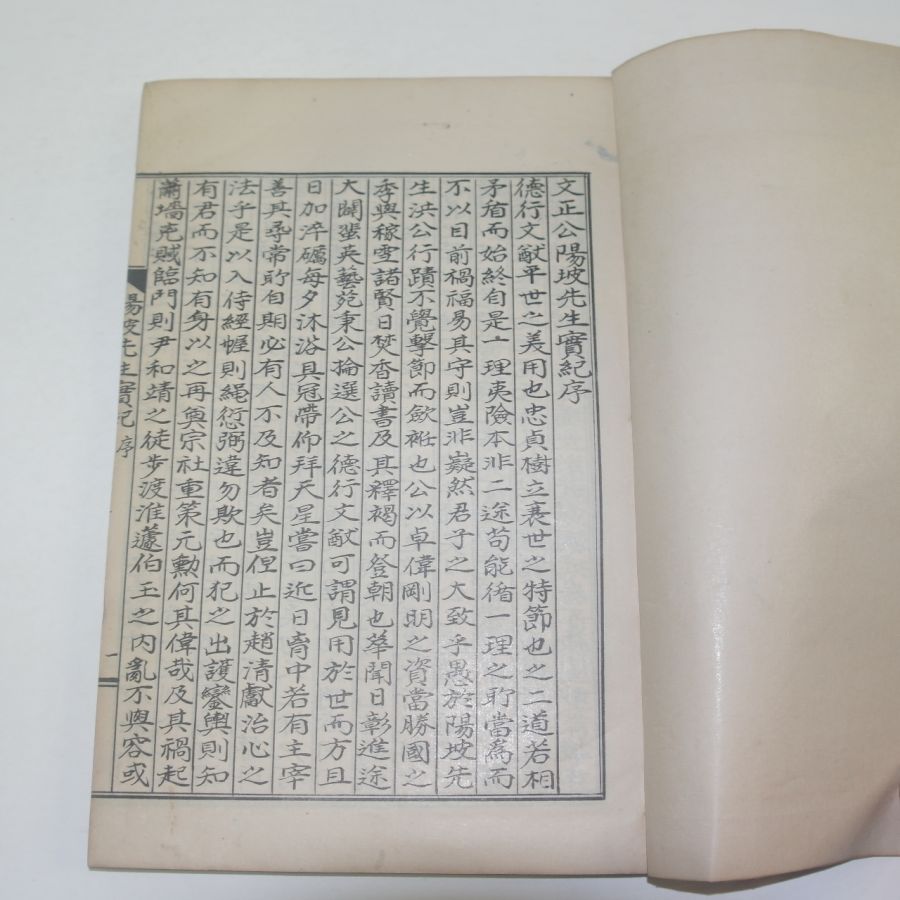 文正公陽坡先生實紀序
德行文猷平世之羙用也忠貞樹立衰世之特節也之二道若相
矛盾而始終自是一理夷險本非二途苟能循一理之所當爲而
不以目前禍福易其守則豈非嶷然君子之大致乎愚於陽坡先
生洪公行蹟不覺擊節而斂袵也公以卓偉剛明之資當勝國之
季與稼雪諸賢日焚香讀書及其釋褐而登朝也華聞日彰進途
大闢蜚英藝苑秉公掄選公之德行文猷可謂見用於世而方且
日加淬礪每夕沐浴具冠帶仰拜天星嘗曰近日胷中若有主宰
善其尋常所自期必有人不及知者矣豈但止於趙清獻治心之
法乎是以入侍經幄則繩愆弼違勿欺也而犯之出護鑾輿則知
有君而不知有身以之再奠宗社重策元勳何其偉哉及其禍起
蕭墻兇賊臨門則尹和靖之徒步渡淮蘧伯玉之內亂不與容或
陽坡先生實紀 序 一